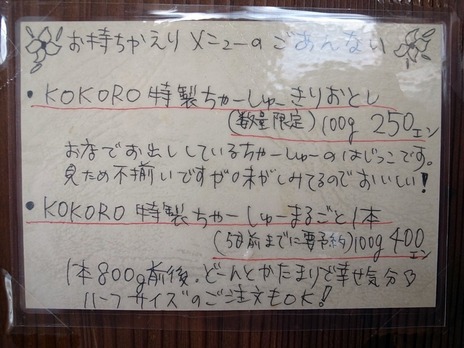 お持ちかえりメニューのごあんない
• KOKORO特製ちゃーしゅーきりおとし
(数量限定)100g 250エン
お店でお出ししているちゃーしゅーのはじっこです。
見ため不揃いですが味がしみてるのでおいしい!
• KOKORO特製ちゃーしゅーまるごと1本
(5日前までに要予約)100g 400エン
1本800g前後。どーんとかたまりで幸せ気分
ハーフサイズのご注文もOK!